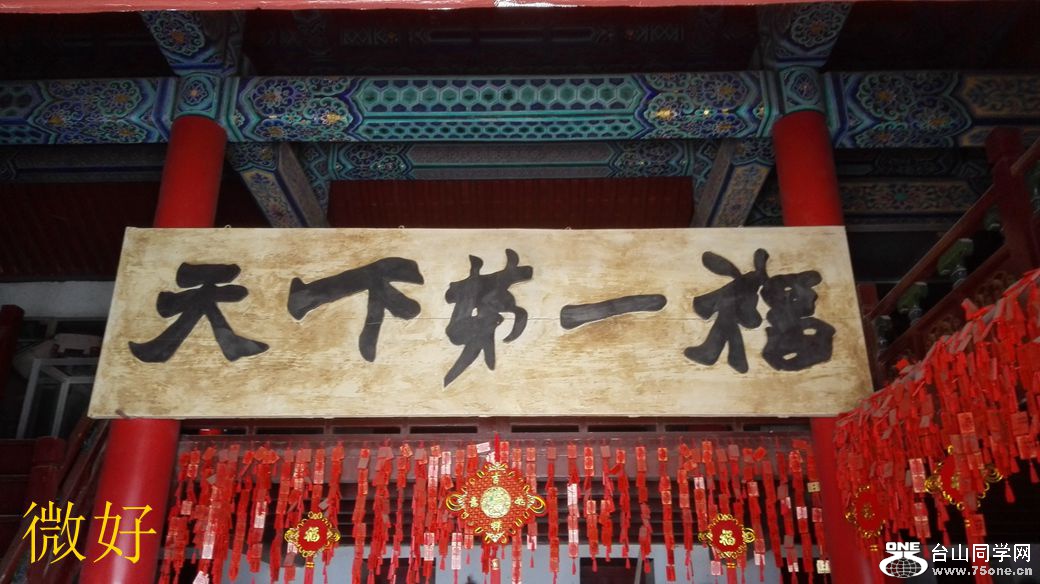 天下第一福
福
福
微好
ONE 台山同学网
www.75one.cn